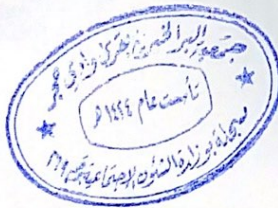 جمعية البر الخيرية بقرى وادي حجر
تأسست عام ١٤٢٤ هـ
مسجلة بوزارة الشئون الإجتماعية برقم